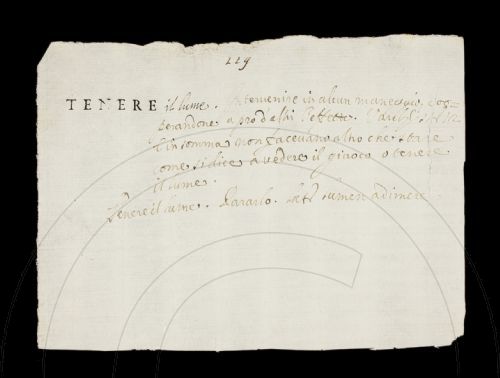 229
TENERE il lume. Intervenire in alcun maneggio, coo=
perandone a pro d'altri l'effetto.
L'insomma non facevano altro che stare
come si dice a vedere il giuoco o tenere
il lume.
Tenere il lume. lumen adimere